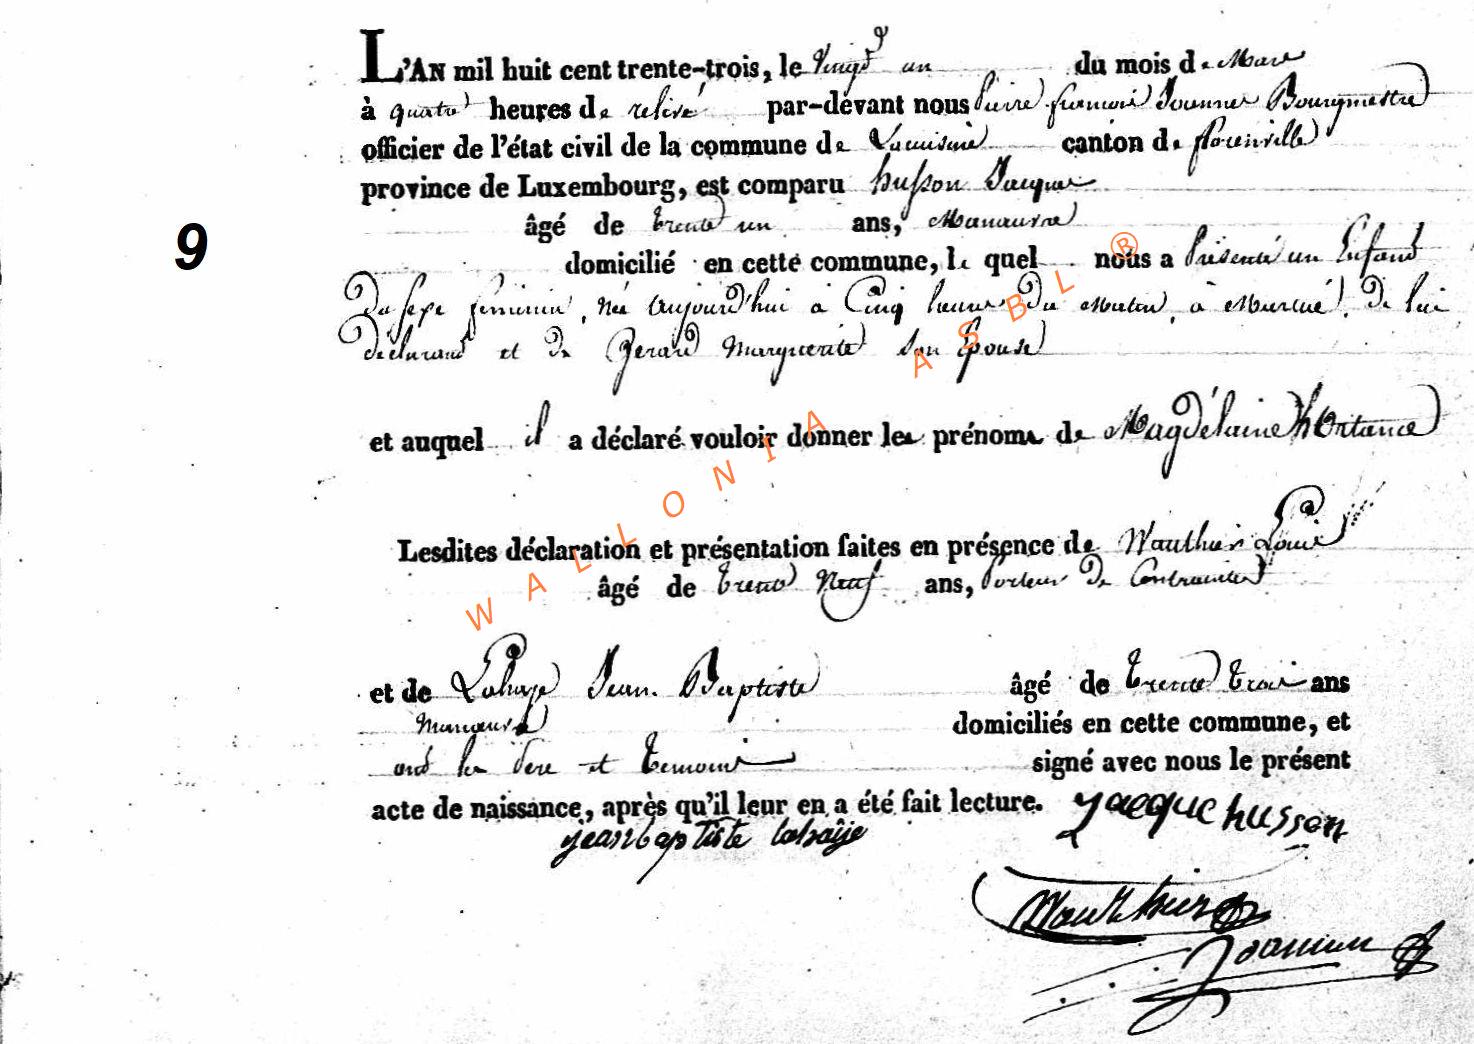 L'AN mil huit cent trente-trois, le Vingt un du mois de Mars
à quatre heures de relevé par-devant nous Pierre françois Joannes Bourgmestre
officier de l'état civil de la commune de Lacuisine canton de florenville
province de Luxembourg, est comparu husson Jacque
âgé de trente un ans, Manœuvre
9
domicilié en cette commune, le quel nous a présenté un Enfant
du sexe féminin, née aujourd'hui à Cinq heures du Matin, à Martué, de lui
déclarant et de Gerard Marguerite son Epouse
et auquel il a déclaré vouloir donner les prénoms de Magdélaine hortance
Lesdites déclaration et présentation faites en présence de Wauthier Louis
âgé de trente Neuf ans, Porteur de Contraintes
et de Lahaye Jean Baptiste âgé de trente trois ans
Manœuvre domiciliés en cette commune, et
ont les Pere et temoins signé avec nous le présent
acte de naissance, après qu'il leur en a été fait lecture. jacque husson
jean baptiste lahaÿe
Wauthier
Joannes
WALLONIA ASBL ®